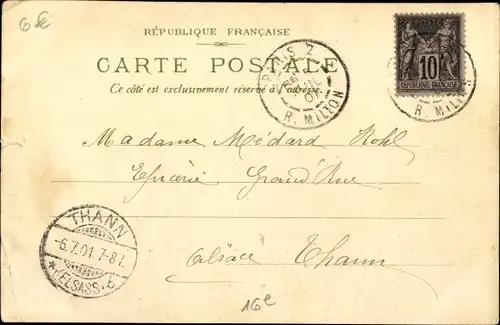 6€
RÉPUBLIQUE FRANÇAISE
CARTE POSTALE
Ce côté est exclusivement réservé à l'adresse.
PARIS 2
R. MILTON
POSTE
10
RÉPUBLIQUE FRANÇAISE
R. MILTON
Madame Médard Kohl
Epicérie Grand'Rue
Alsace Thann
THANN
-6.7.01.7-8
* (ELSASS) b
16e